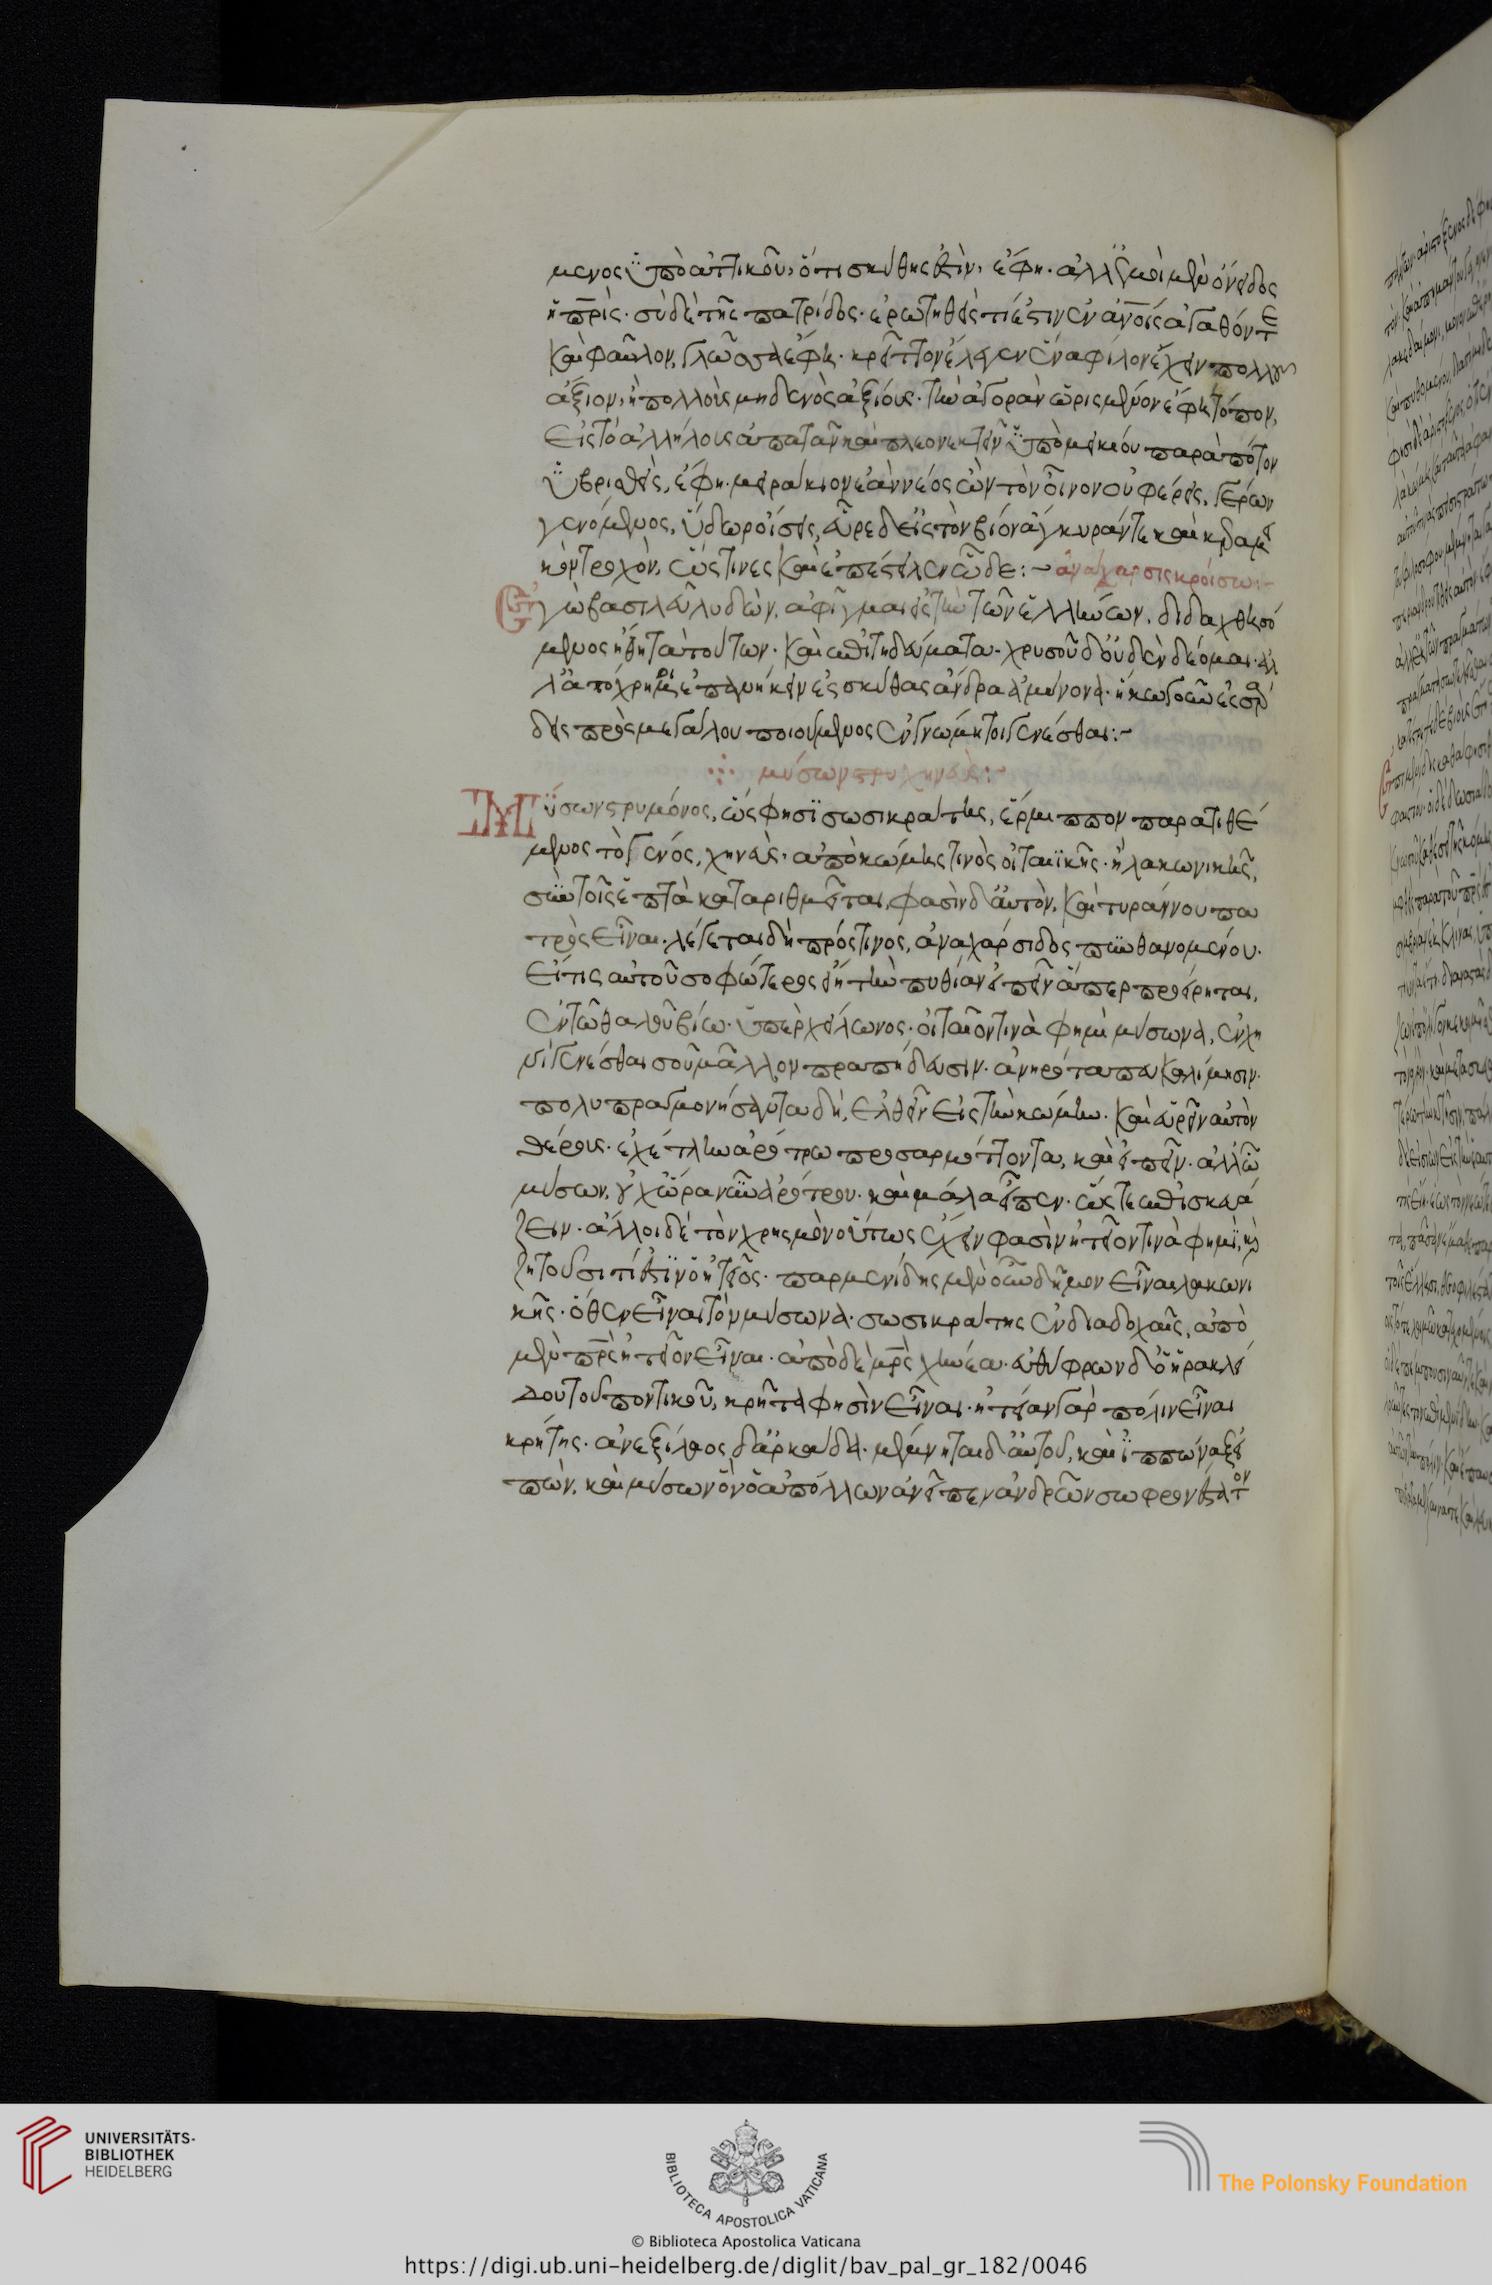 μενος ὑπὸ ἀττικοῦ, ὅτι σκύθης ἐστὶν, ἔφη. ἀλλ' ἐμοὶ μὲν ὄνειδος
ἡ πρὶς. σὺ δὲ τῆς πατρίδος. ἐρωτηθεὶς τί ἐστιν ἐν ἀνοις ἀγαθόν τε
καὶ φαῦλον, γλῶσσα ἔφη. κρεῖττον ἔλεγεν ἕνα φίλον ἔχειν πολλοῦ
ἄξιον, ἢ πολλοὺς μηδενὸς ἀξίους. τὴν ἀγορὰν ὡρισμένον ἔφη τόπον,
εἰς τὸ ἀλλήλους ἀπατᾶν καὶ πλεονεκτεῖν ὑπὸ μειρακίου παρὰ πότον
ὑβρισθεὶς, ἔφη. μειράκιον ἐὰν νέος ὢν τὸν οἶνον οὐ φέρεις, γέρων
γενόμενος, ὕδωρ οἴσεις, εὗρε δ' εἰς τὸν βίον ἄγκυράν τε καὶ κεραμει
κὸν τροχὸν, ὥς τινες καὶ ἐπέστειλεν ὧδε:~ ἀνάχαρσις κροίσω:~
Ἐγὼ βασιλεῦ λυδῶν, ἀφῖγμαι εἰς τὴν τῶν ἑλλήνων, διδαχθησό
μενος ἤθη τὰ τούτων. καὶ ἐπιτηδεύματα. χρυσοῦ δ' οὐδὲν δέομαι. ἀλ
λ' ἀπόχρη με ἐπανήκειν ἐς σκύθας ἄνδρα ἀμείνονα. ἥκω γοῦν ἐς σάρ
δεις πρὸ μεγάλου ποιούμενος ἐν γνώμη τοι γενέσθαι:~
μύσων στρυχηνεὺς:~
Μύσων στρυμόνος, ὥς φησι σωσικράτης, ἕρμιππον παρατιθέ
μενος τὸ γένος, χηνεὺς. ἀπὸ κώμης τινὸς οἰταϊκῆς. ἢ λακωνικῆς,
σὺν τοῖς ἑπτὰ καταριθμεῖται, φασὶν δ' αὐτὸν, καὶ τυράννου πα
τρὸς εἶναι. λέγεται δὴ πρός τινος, ἀναχάρσιδος πυνθανομένου.
εἴ τις αὐτοῦ σοφώτερος εἴη τὴν πυθίαν εἰπεῖν ἅπερ προείρηται,
ἐν τῶ θαλοῦ βίω. ὑπὲρ χείλωνος. οἰταῖον τινὰ φημὶ μύσωνα, ἐν χη
νὶ γενέσθαι σοῦ μᾶλλον πραπήδεσιν. ἀνηρότα πευκαλίμησιν.
πολυπραγμονήσαντα δὴ, ἐλθεῖν εἰς τὴν κώμην. καὶ εὑρεῖν αὐτὸν
θέρους. ἐχέτλην ἀρότρω προσαρμόττοντα, καὶ εἰπεῖν. ἀλλ' ὦ
μύσων, οὐχ ὥρα νῦν ἀρότρου. καὶ μάλα εἶπεν. ὥστε ἐπισκευά
ζειν. ἄλλοι δὲ τὸν χρησμὸν οὕτως ἔχειν φασὶν ἠτεῖον τινὰ φημὶ, καὶ
ζητοῦσι τί ἐστιν ὁ ἠτεῖος. παρμενίδης μὲν οὖν δῆμον εἶναι λακωνι
κῆς. ὅθεν εἶναι τὸν μύσωνα. σωσικράτης ἐν διαδοχαῖς, ἀπὸ
μὲν πρς ἠτεῖον εἶναι. ἀπὸ δὲ μρς χηνέα. εὐθύφρων δ' ὁ ἡρακλεί
δου τοῦ ποντικοῦ, κρῆτα φησὶν εἶναι. ἠτείαν γὰρ πόλιν εἶναι
κρήτης. ἀνεξίλαος δ' ἀρκάδα. μέμνηται δ' αὐτοῦ, καὶ ἱππώναξ εἰ
πὼν, καὶ μύσων ὃν ὁ ἀπόλλων ἀνεῖπεν ἀνδρῶν σωφρονέστατον
UNIVERSITÄTS-
BIBLIOTHEK
HEIDELBERG
BIBLIOTECA APOSTOLICA VATICANA
The Polonsky Foundation
© Biblioteca Apostolica Vaticana
https://digi.ub.uni-heidelberg.de/diglit/bav_pal_gr_182/0046